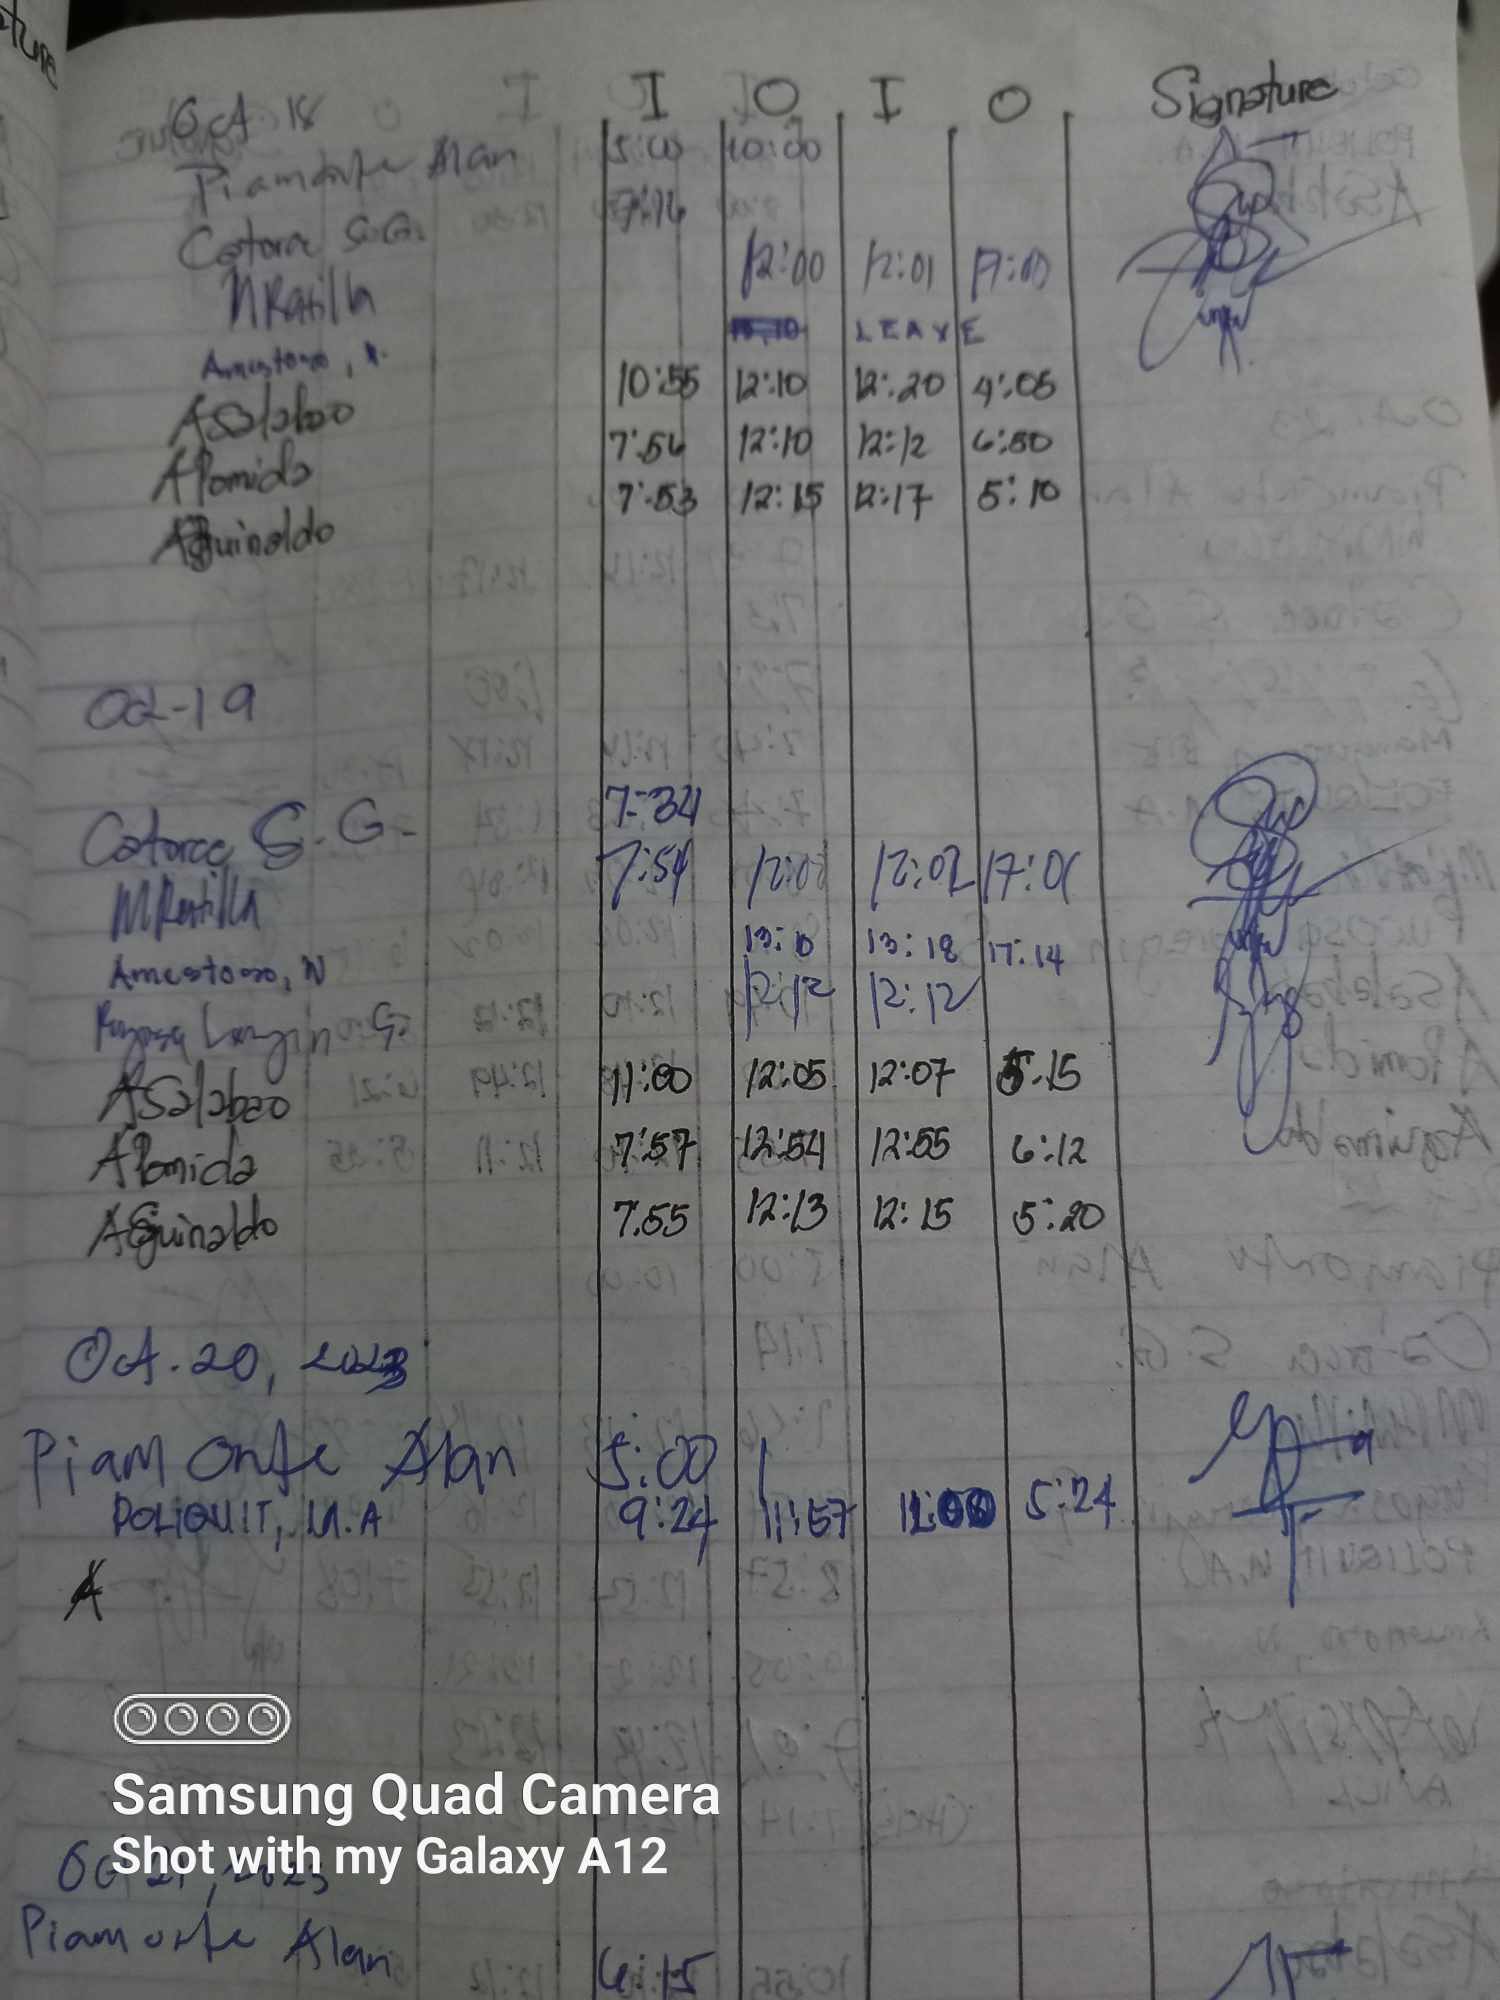 I O I O Signature
Oct 18
Piamonte Alan 5:00 10:00
Catorce S.G. 7:16
MRatilla 12:00 12:01 17:00
Amestoso, N. LEAVE
ASalabao 10:55 12:10 12:20 4:05
APomida 7:56 12:10 12:12 6:50
AGuinaldo 7:53 12:15 12:17 5:10
Oct-19
Catorce S.G. 7:34
MRatilla 7:54 12:00 12:02 17:01
Amestoso, N 13:10 13:18 17:14
12:12 12:12
ASalabao 11:00 12:05 12:07 5:15
APomida 7:57 12:54 12:55 6:12
AGuinaldo 7:55 12:13 12:15 5:20
Oct. 20, 2023
Piamonte Alan 5:00
POLIQUIT, M.A 9:24 11:57 5:24
A
Samsung Quad Camera
Shot with my Galaxy A12
Oct 21, 2023
Piamonte Alan 6:15